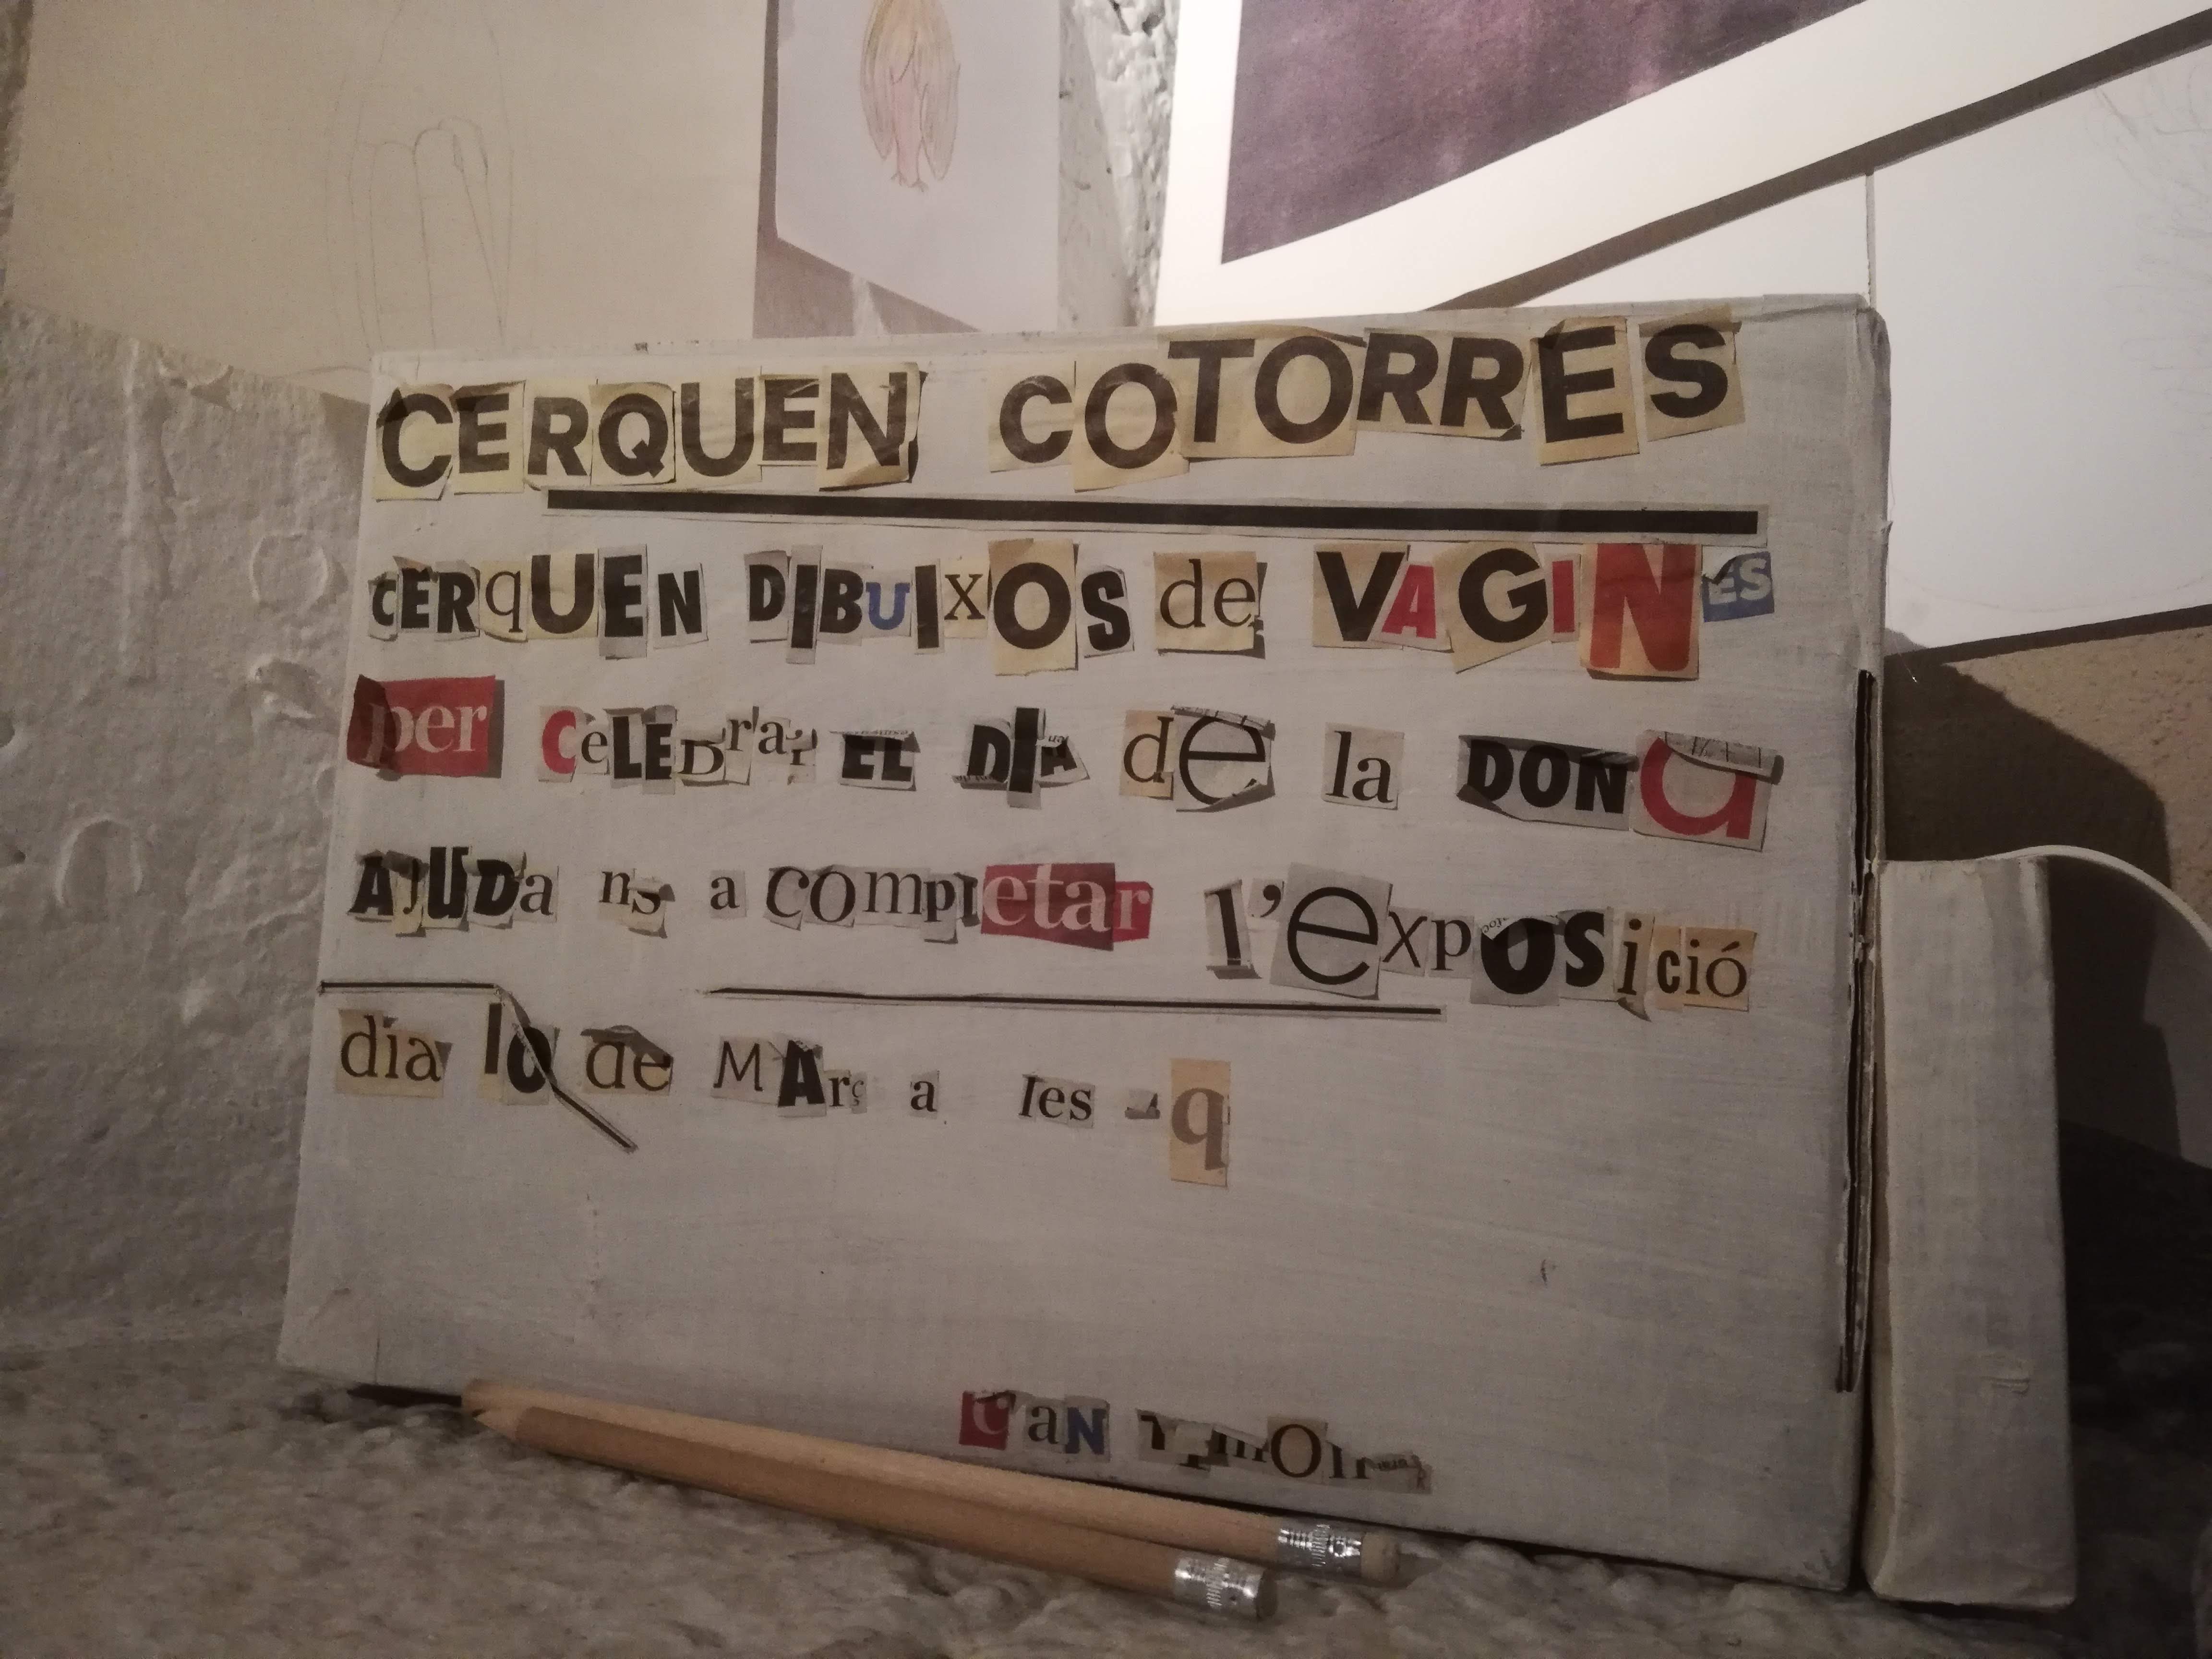 CERQUEN COTORRES
CERqUEN DIBUIXOS de VAGINES
per CeLEbrar EL DIA de la DONa
AJUDa ns a completar l'exposició
día 10 de MArç a les
CaN